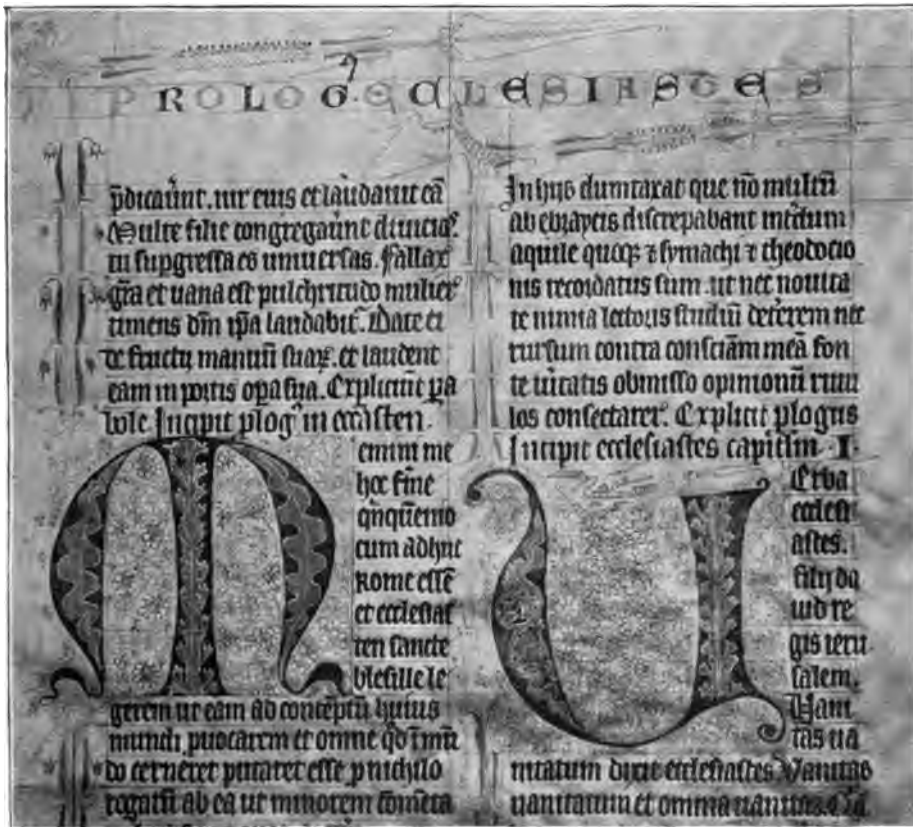 PROLOG. ECCLESIASTES
p̄dicau̅nt. uir eius et laudauit eā
Multe filie congregau̅nt diuicias.
tu supgressa es uniuersas. Fallax
gr̄a et uana est pulchritudo mulier
timens dm̄ ip̄a laudabit. Date ei
de fructu manuū suaꝝ. et laudent
eam in portis opa sua. Explicit pa
bole Incipit plog in ecc̄asten.
Memini me
hoc fine
qn̄quēnio
cum adhuc
Rome essē
et ecclesias
ten sancte
blesille le
gerem ut eam ad conceptū huius
mundi puocarem et omne qd̄ ī mū
do cerneret putaret esse p nichilo
rogatū ab ea ut minorem cōmēta
In hijs dumtaxat que nō multū
ab ebrayeis discrepabant īterdum
aquile quoqꝫ ⁊ symachi ⁊ theodocio
nis recordatus sum. ut nec nouita
te nimia lectoris studiū deterrem nec
rursum contra consciām meā fon
te uitatis obmisso opinionū riuu
los consectarer. Explicit plogus
Incipit ecclesiastes capitlm̄. I.
VErba
ecclesi
astes.
filij da
uid re
gis ieru
salem.
Vani
tas ua
nitatum dixit ecclesiastes Vanitas
uanitatum et omnia uanitas.